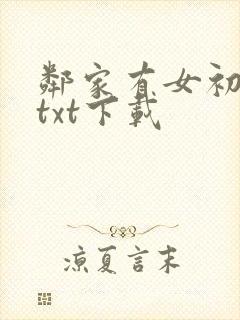 鄰家有女初
txt下載
涼夏言末